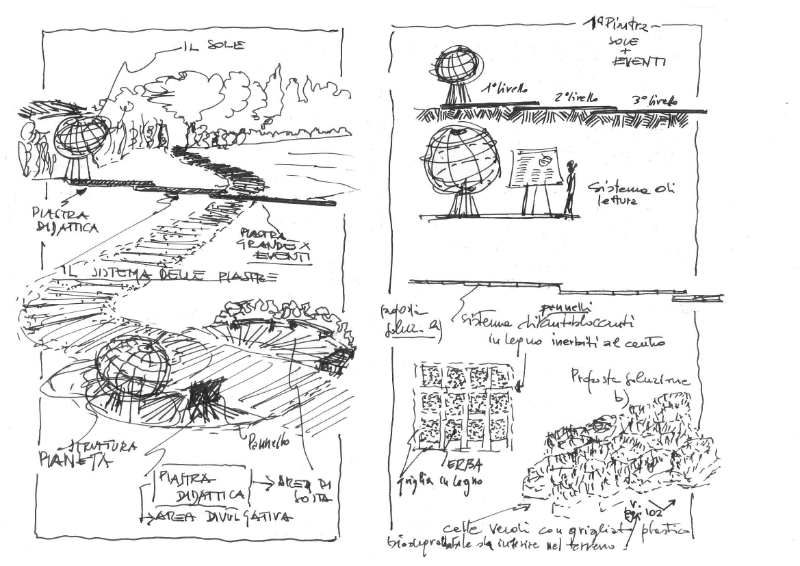 IL SOLE
PIASTRA
DIDATTICA
PIASTRA
GRANDE X
EVENTI
IL SISTEMA DELLE PIASTRE
STRUTTURA
PIANETA
Pannello
PIASTRA
DIDATTICA
AREA DI
SOSTA
AREA DIVULGATIVA
1ª Piastra
SOLE
+
EVENTI
1° livello
2° livello
3° livello
Sistema di
lettura
proposta
soluz. a)
pannelli
sistema di autobloccanti
in legno inerbiti al centro
ERBA
griglia in legno
Proposta soluzione
b)
celle verdi con grigliato plastica
da inserire nel terreno